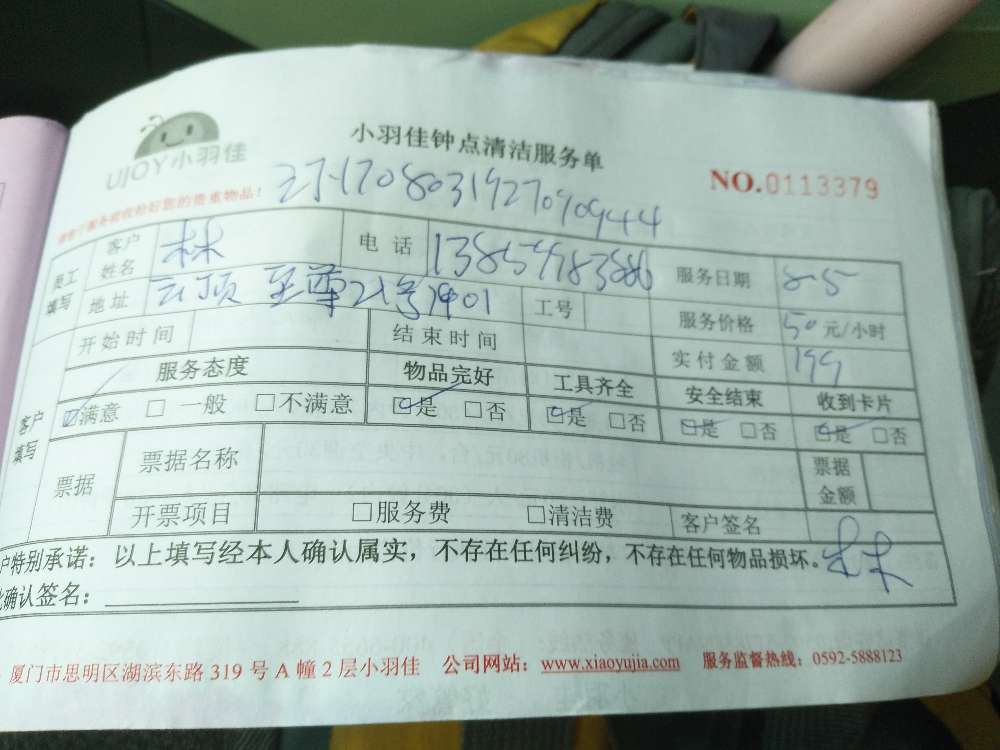 UJOY小羽佳
小羽佳钟点清洁服务单
NO.0113379
客户姓名 林 电话 服务日期 8-5
员工填写
地址 云顶至尊 工号 服务价格 50元/小时
开始时间 结束时间 实付金额 199
服务态度 物品完好 工具齐全 安全结束 收到卡片
客户填写
☑满意 □一般 □不满意 ☑是 □否 ☑是 □否 ☑是 □否 ☑是 □否
票据 票据名称 票据金额
开票项目 □服务费 □清洁费 客户签名
户特别承诺：以上填写经本人确认属实，不存在任何纠纷，不存在任何物品损坏。林
确认签名：
厦门市思明区湖滨东路319号A幢2层小羽佳 公司网站：www.xiaoyujia.com 服务监督热线：0592-5888123